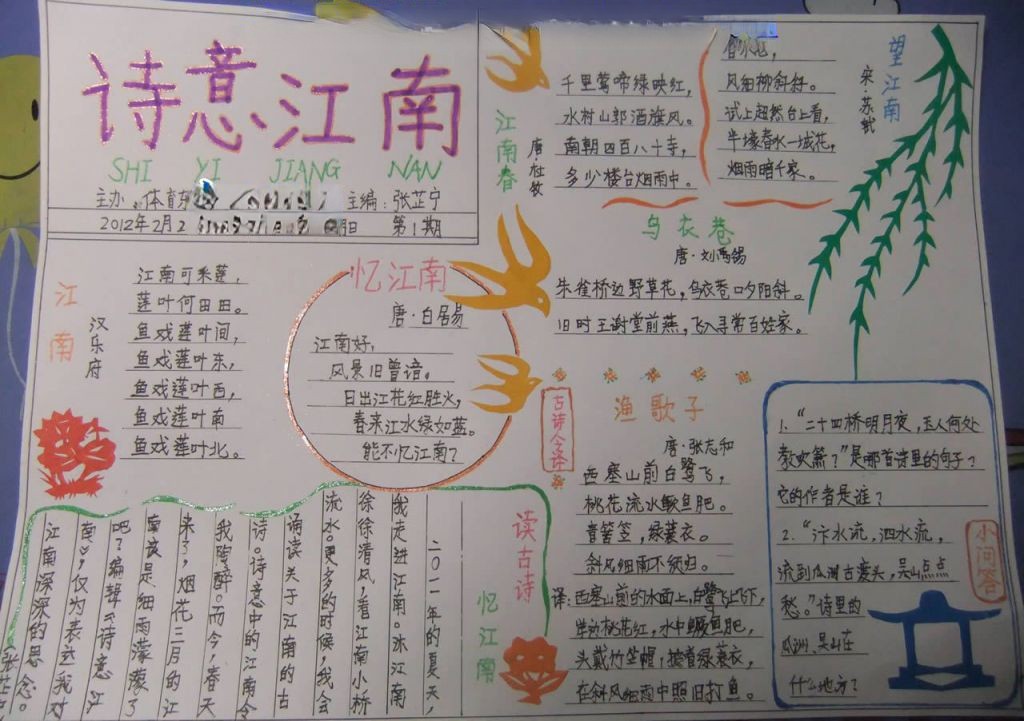 诗意江南
SHI YI JIANG NAN
主办:体育
主编:张芷宁
2012年2月2
第1期
江南
汉乐府
江南可采莲,
莲叶何田田。
鱼戏莲叶间,
鱼戏莲叶东,
鱼戏莲叶西,
鱼戏莲叶南
鱼戏莲叶北。
忆江南
唐·白居易
江南好,
风景旧曾谙。
日出江花红胜火,
春来江水绿如蓝。
能不忆江南?
江南春
唐·杜牧
千里莺啼绿映红,
水村山郭酒旗风。
南朝四百八十寺,
多少楼台烟雨中。
望江南
宋·苏轼
春未老,
风细柳斜斜。
试上超然台上看,
半壕春水一城花,
烟雨暗千家。
乌衣巷
唐·刘禹锡
朱雀桥边野草花,乌衣巷口夕阳斜。
旧时王谢堂前燕,飞入寻常百姓家。
古诗今译
渔歌子
唐·张志和
西塞山前白鹭飞,
桃花流水鳜鱼肥。
青箬笠,绿蓑衣。
斜风细雨不须归。
译:西塞山前的水面上,白鹭飞上飞下,
岸边桃花红,水中鳜鱼肥,
头戴竹笠帽,披着绿蓑衣,
在斜风细雨中照旧打鱼。
小问答
1.“二十四桥明月夜,玉人何处
教吹箫?”是哪首诗里的句子?
它的作者是谁?
2.“汴水流,泗水流,
流到瓜洲古渡头,吴山点点
愁。”诗里的
瓜洲、吴山在
什么地方?
读古诗
忆江南
二〇一一年的夏天,
我走进江南。沐江南
徐徐清风,看江南小桥
流水。更多的时候,我会
诵读关于江南的古
诗。诗意中的江南令
我陶醉。而今,春天
来了,烟花三月的江
南该是细雨濛濛了
吧?编辑《诗意江
南》,仅为表达我对
江南深深的思念。
张芷